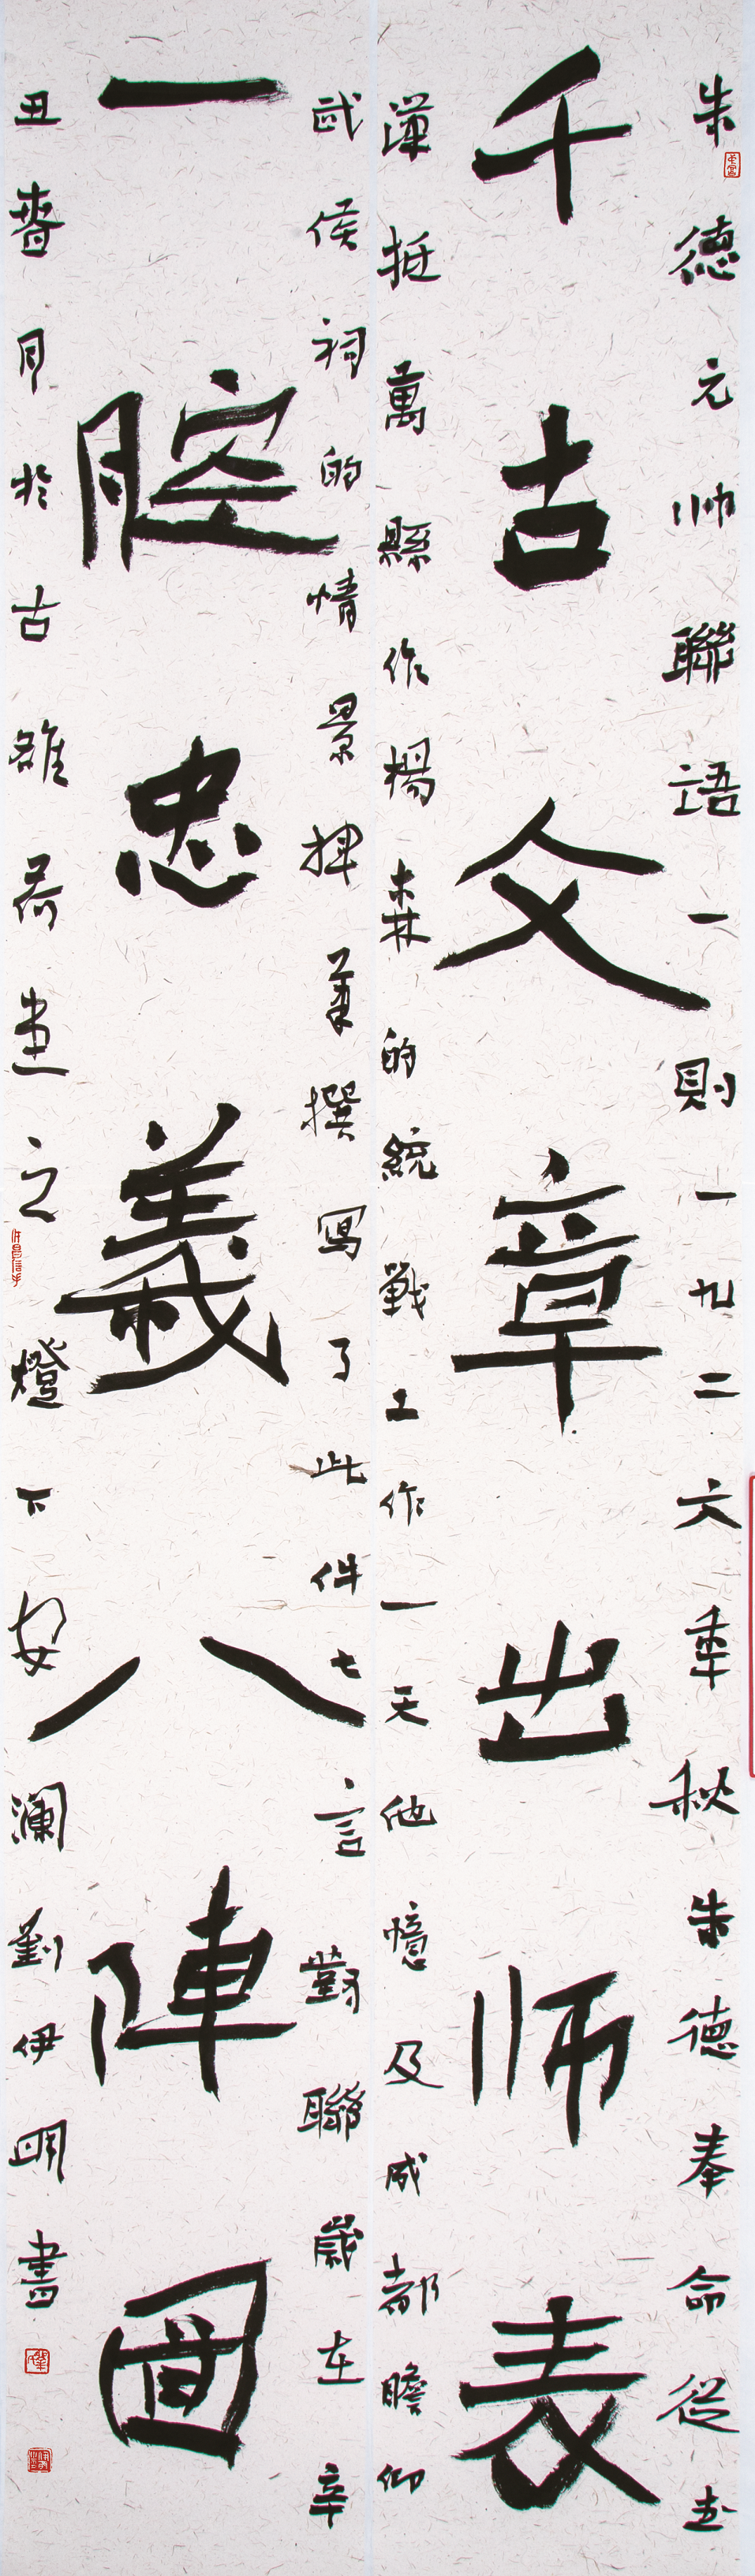 朱德元帅聯語一則一九二六年秋朱德奉命從武
千古文章出师表
漢抵萬縣作楊森的統戰工作一天他憶及成都瞻仰
武侯祠的情景揮筆撰寫了此件七言對聯歲在辛
一腔忠義八陣圖
丑春月於古雒荷之燈下安瀾劉伊明書